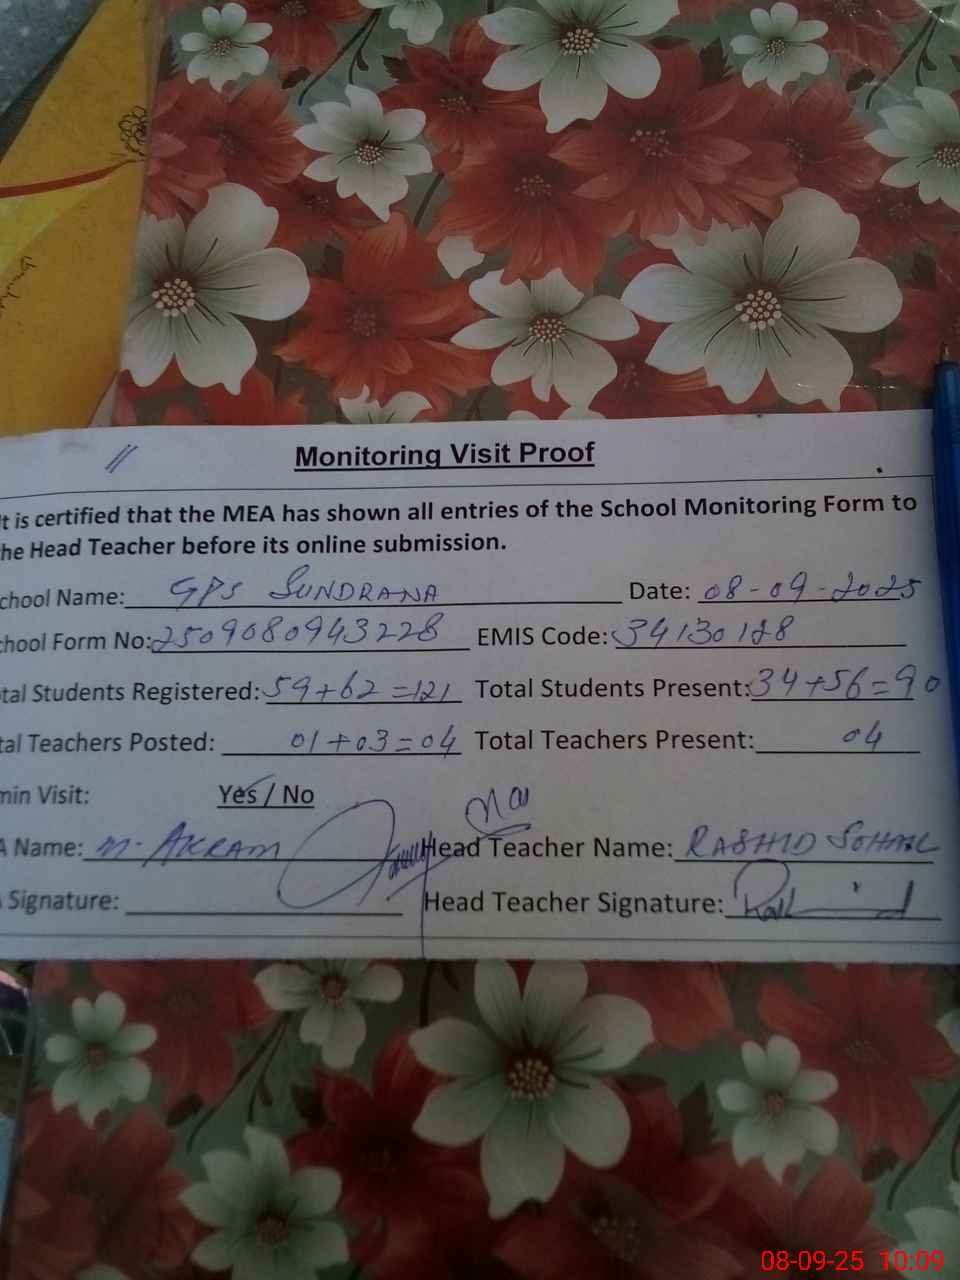 Monitoring Visit Proof
It is certified that the MEA has shown all entries of the School Monitoring Form to
he Head Teacher before its online submission.
chool Name: GPS SUNDRANA Date: 08-09-2025
chool Form No: 2509080943228 EMIS Code: 34130128
tal Students Registered: 59+62=121 Total Students Present: 34+56=90
tal Teachers Posted: 01+03=04 Total Teachers Present: 04
min Visit: Yes / No
A Name: M. AKRAM Head Teacher Name: RASHID SOHAIL
Signature: Head Teacher Signature:
08-09-25 10:09